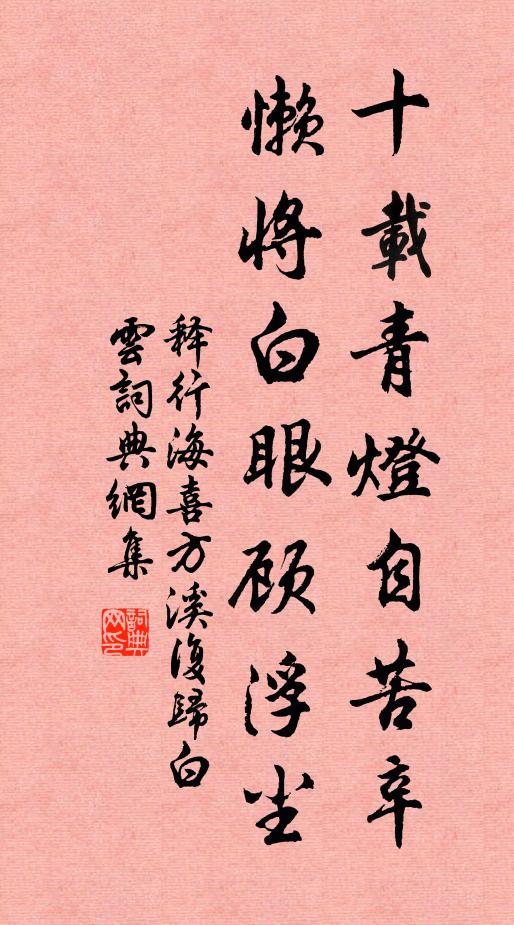 十載青燈自苦辛
懒將白眼顾浮尘
释行海喜方溪復歸白
雲詞典網集
詞典網印